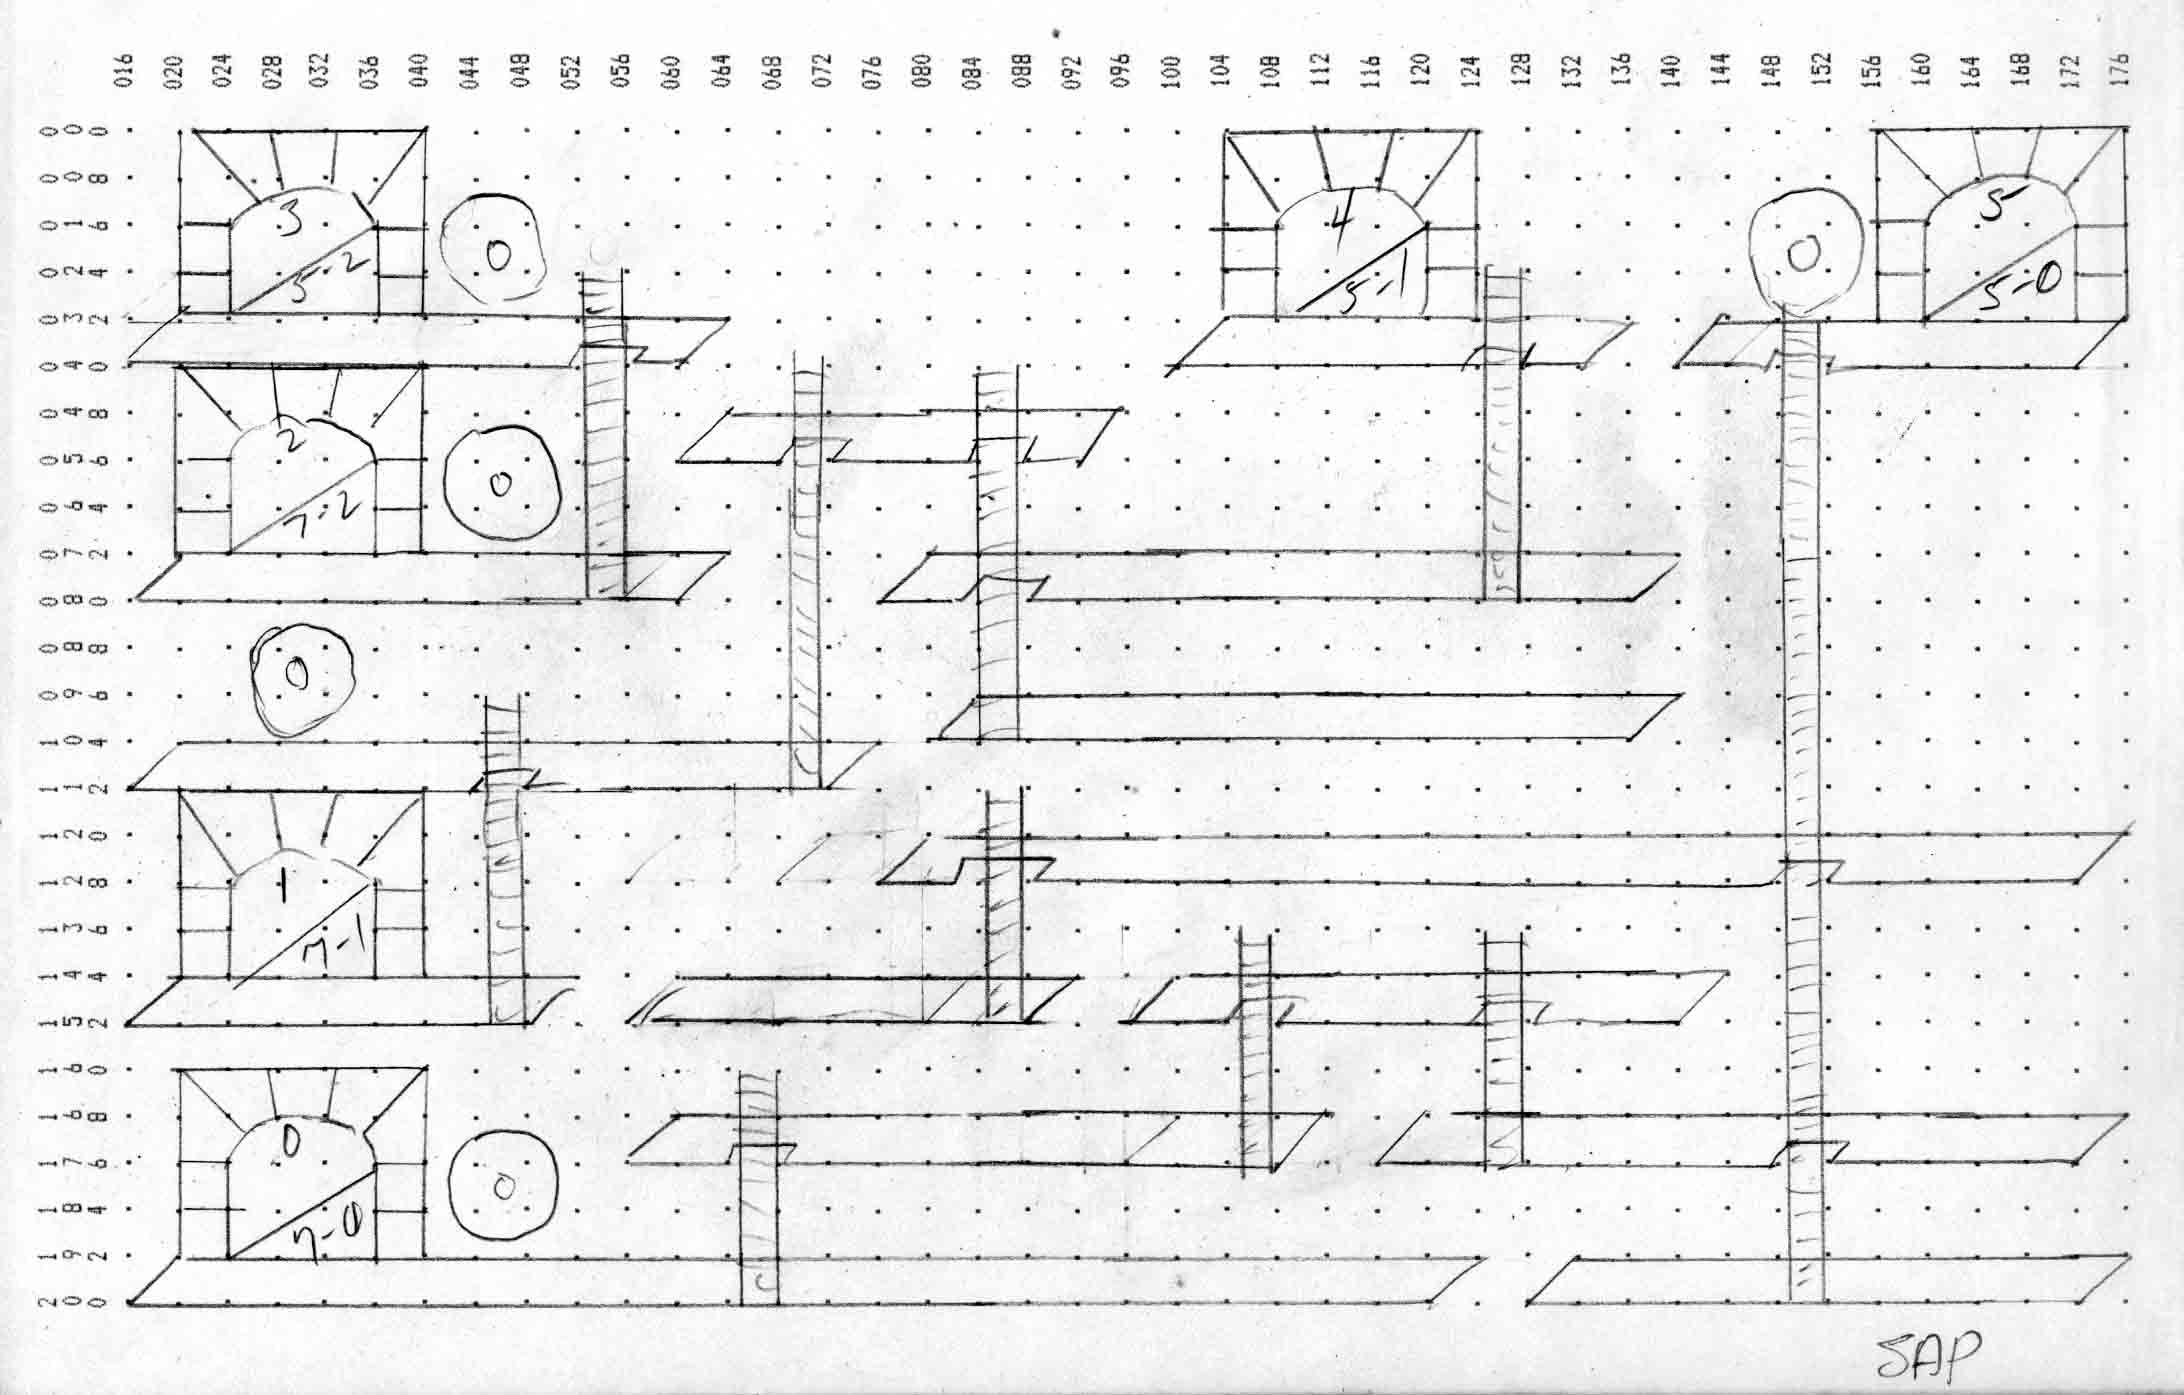 016 020 024 028 032 036 040 044 048 052 056 060 064 068 072 076 080 084 088 092 096 100 104 108 112 116 120 124 128 132 136 140 144 148 152 156 160 164 168 172 176
000
008
016
024
032
040
048
056
064
072
080
088
096
104
112
120
128
136
144
152
160
168
176
184
192
200
3
5-2
0
4
5-1
0
5
5-0
2
7-2
0
0
1
7-1
0
7-0
0
SAP